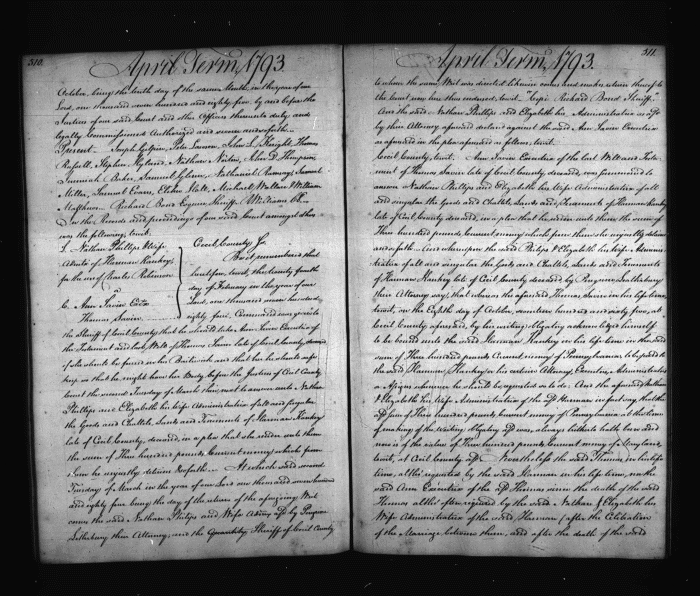 310.
April Term, 1793.
October, being the tenth day of the same Month, in the year of our
Lord, one thousand seven hundred and eighty five, by and before the
Justices of our said Court and other Officers thereunto duly and
legally Commissioned Authorized and sworn
Present. Joseph Gilpin, Peter Lawson, John L. Knight, Thomas
Russell, Stephen Hyland, Nathan Norton, John D. Thompson,
Jeremiah Baker, Samuel Glenn, Nathaniel Ramsay, Samuel
Miller, Samuel Evans, Elihu Hall, Michael Wallace William
Matthews. Richard Bond Esquire Sheriff, William
In the Records and proceedings of our said Court amongst others
was the following, towit.
Nathan Phillips & Wife
Admrs. of Herman Hankey,
for the use of Charles Robinson
v
Ann Savin Extx
Thomas Savin
Cecil County Sc.
Be it remembered that
heretofore, towit, the twenty fourth
day of February in the year of our
Lord, one thousand seven hundred,
eighty four. Command was given to
the Sheriff of Cecil County, that he should take Ann Savin Executrix of
the Testament and last Will of Thomas Savin late of Cecil County, deceased
if she should be found in his Bailiwick and that her he should safe
keep so that he might have her Body before the Justices of Cecil County
Court the second Tuesday of March then next to answer unto Nathan
Phillips and Elizabeth his Wife Administratrix of all and singular
the Goods and Chattels, Lands and Tenements of Herman Hankey
late of Cecil County, deceased, in a plea that she render unto them
the sum of Three hundred pounds Current money which from
them he unjustly detains &c. At which said second
Tuesday of March in the year of our Lord one thousand seven hundred
and eighty four being the day of the return of the aforegoing Writ
come the said Nathan Philips and Wife Admrs. afd. by Peregrine
Letherbury their Attorney, and the Sheriff of Cecil County
311.
April Term, 1793.
to whom the same Writ was directed likewise comes and makes return thereof to
the Court here thus endorsed, towit. "Cepi" Richard Bond Sheriff."
And the said Nathan Phillips and Elizabeth his, Administratrix as afd.
by their Attorney aforesaid declare against the said Ann Savin Executrix
as aforesaid in the plea aforesaid as follows, towit.
Cecil County, towit. Ann Savin Executrix of the last Will and Testa-
ment of Thomas Savin late of Cecil County deceased, was summoned to
answer Nathan Phillips and Elizabeth his Wife Administratrix of all
and singular the Goods and Chattels, Lands and Tenements of Herman Hankey
late of Cecil County, deceased, in a plea that he render unto them the sum of
Three hundred pounds Current money which from them she unjustly detains
and soforth. And whereupon the said Philips & Elizabeth his Wife Adminis-
tratrix of all and singular the Goods and Chattels, Lands and Tenements
of Herman Hankey late of Cecil County deceased, by Peregrine Letherbury
their Attorney say, that whereas the aforesaid Thomas Savin in his life time,
towit, on the Eighth day of October, seventeen hundred and seventy five, at
Cecil County aforesaid, by his writing Obligatory acknowledged himself
to be bound unto the said Herman Hankey in his life time in the said
sum of Three hundred pounds Current money of Pennsylvania, to be paid to
the said Herman Hankey, or his certain Attorney, Executors, Administrators
or Assigns whenever he should be requested so to do. And the aforesaid Nathan
& Elizabeth his Wife Administratrix of the afd. Herman in fact say, that the
afd. sum of Three hundred pounds Current money of Pennsylvania at the time
of making of the writing Obligatory afd. was, always hitherto hath been and
now is of the value of Three hundred pounds Current money of Maryland,
towit, at Cecil County afd. Nevertheless the said Thomas, in his life
time, altho' requested by the said Herman in his life time, nor the
said Ann Executrix of the afd. Thomas since the death of the said
Thomas altho' often requested by the said Nathan & Elizabeth his
Wife Administratrix of the said Herman (after the Celebration
of the Marriage between them, and after the death of the said